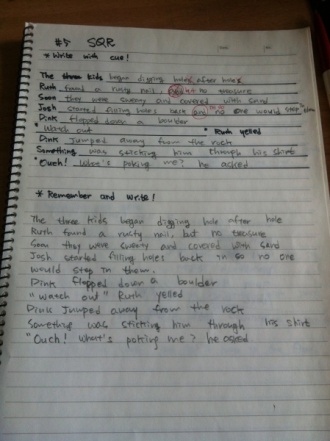 #5 SQR
* Write with cue!
The three kids began digging hole after hole
Ruth found a rusty nail, but no treasure
Soon they were sweaty and covered with sand
Josh started filling holes back so no one would step
Dink flopped down a boulder
Watch out " Ruth yelled
Dink Jumped away from the rush
Something was sticking him through his shirt
"Ouch! What's poking me? he asked
* Remember and Write!
The three kids began digging hole after hole
Ruth found a rusty nails but no treasure
Soon they were sweaty and covered with sand
Josh started filling holes back in so no one
would step in them.
Dink flopped down a boulder
"watch out" Ruth yelled
Dink Jumped away from the rock
Something was sticking him through his shirt
"Ouch! What's poking me? he asked